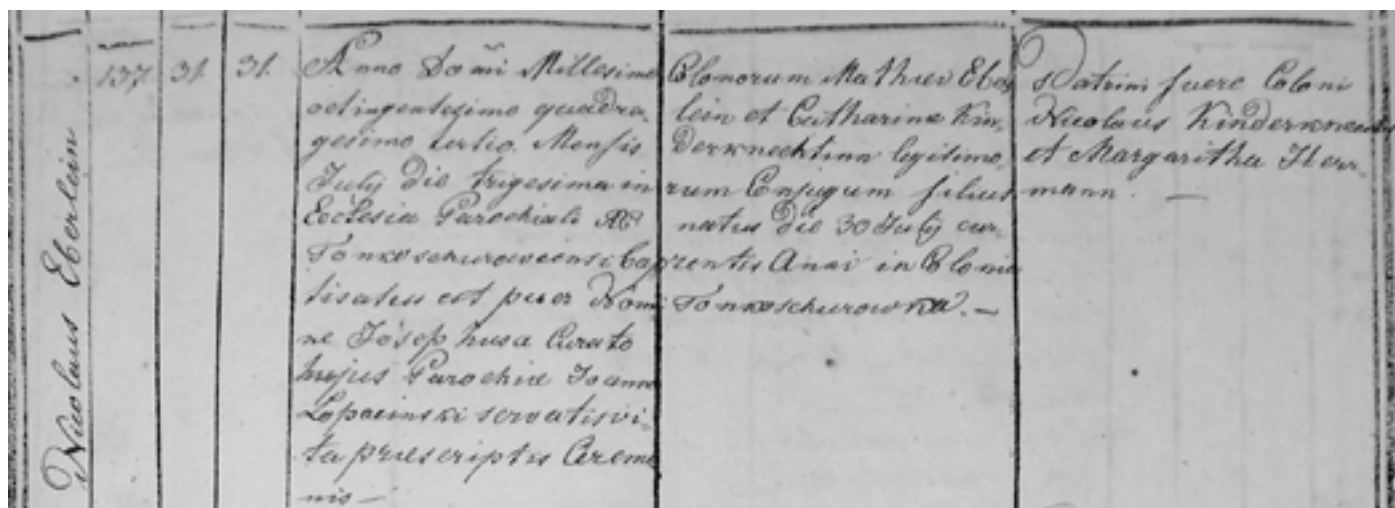 Nicolaus Eberlein
137 31. 31.
Anno Domi Millesimo
octingentesimo quadra,
gesimo tertio. Mensis
July Die trigesima in
Ecclesia Parochiali RC
Tonkoschurowcensi bap
tisatus est puer Nomi
ne Josephus a Curato
hujus Parochiæ Joanne
Lopacinski servatis vi,
ta præscriptis Ceremo
nis —
Colonorum Mathiei Eber
lein et Catharina Kin,
derknechtinn legitimo,
rum Conjugum filius
natus die 30 July cur,
rentis Anni in Colonia
Tonkoschurowka. —
Patrini fuere Coloni
Nicolaus Kinderknecht
et Margaritha Herr,
mann. —